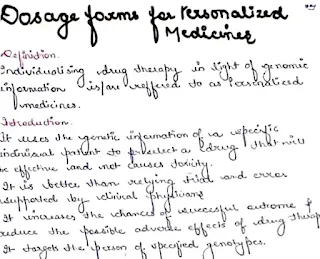 Dosage forms for Personalized
Medicines
Definition.
Individualising drug therapy in light of genomic
information is/are reffered to as Personalized
medicines.
Introduction.
It uses the genetic information of a specific
individual patient to predict a drug that will
be effective and not causes toxicity.
It is better than relying trial and error
supported by clinical physicians
It increases the chance of successful outcome &
reduce the possible adverse effects of drug therapy
It targets the person of specified genotypes.